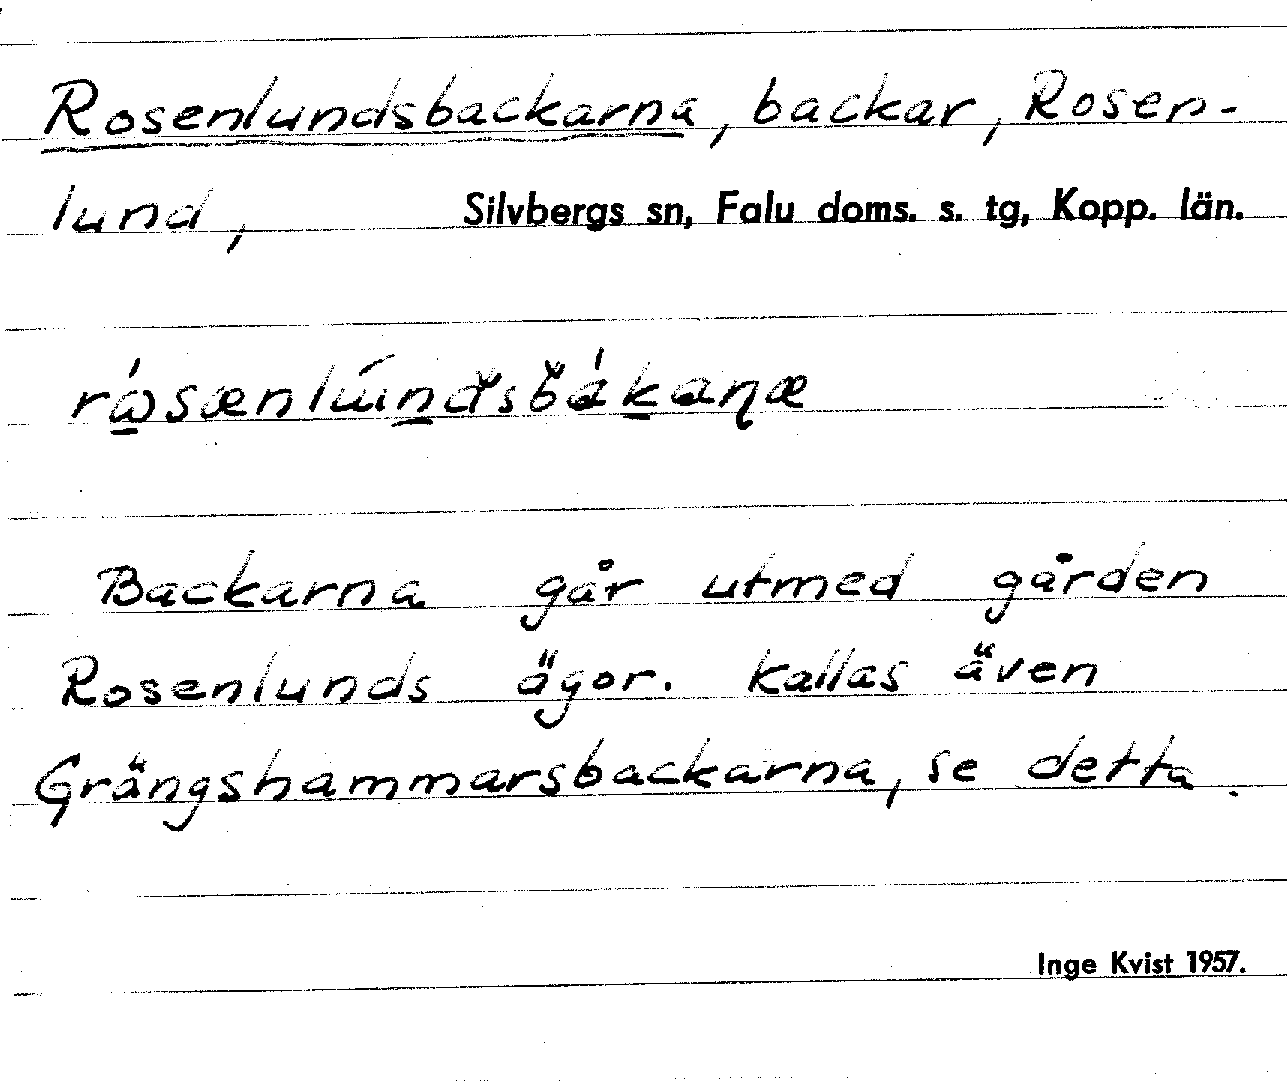 Rosenlundsbackarna, backar, Rosen-
lund, Silvbergs sn, Falu doms. s. tg, Kopp. län.
Backarna går utmed gården
Rosenlunds ägor. kallas även
Grängshammarsbackarna, se detta.
Inge Kvist 1957.